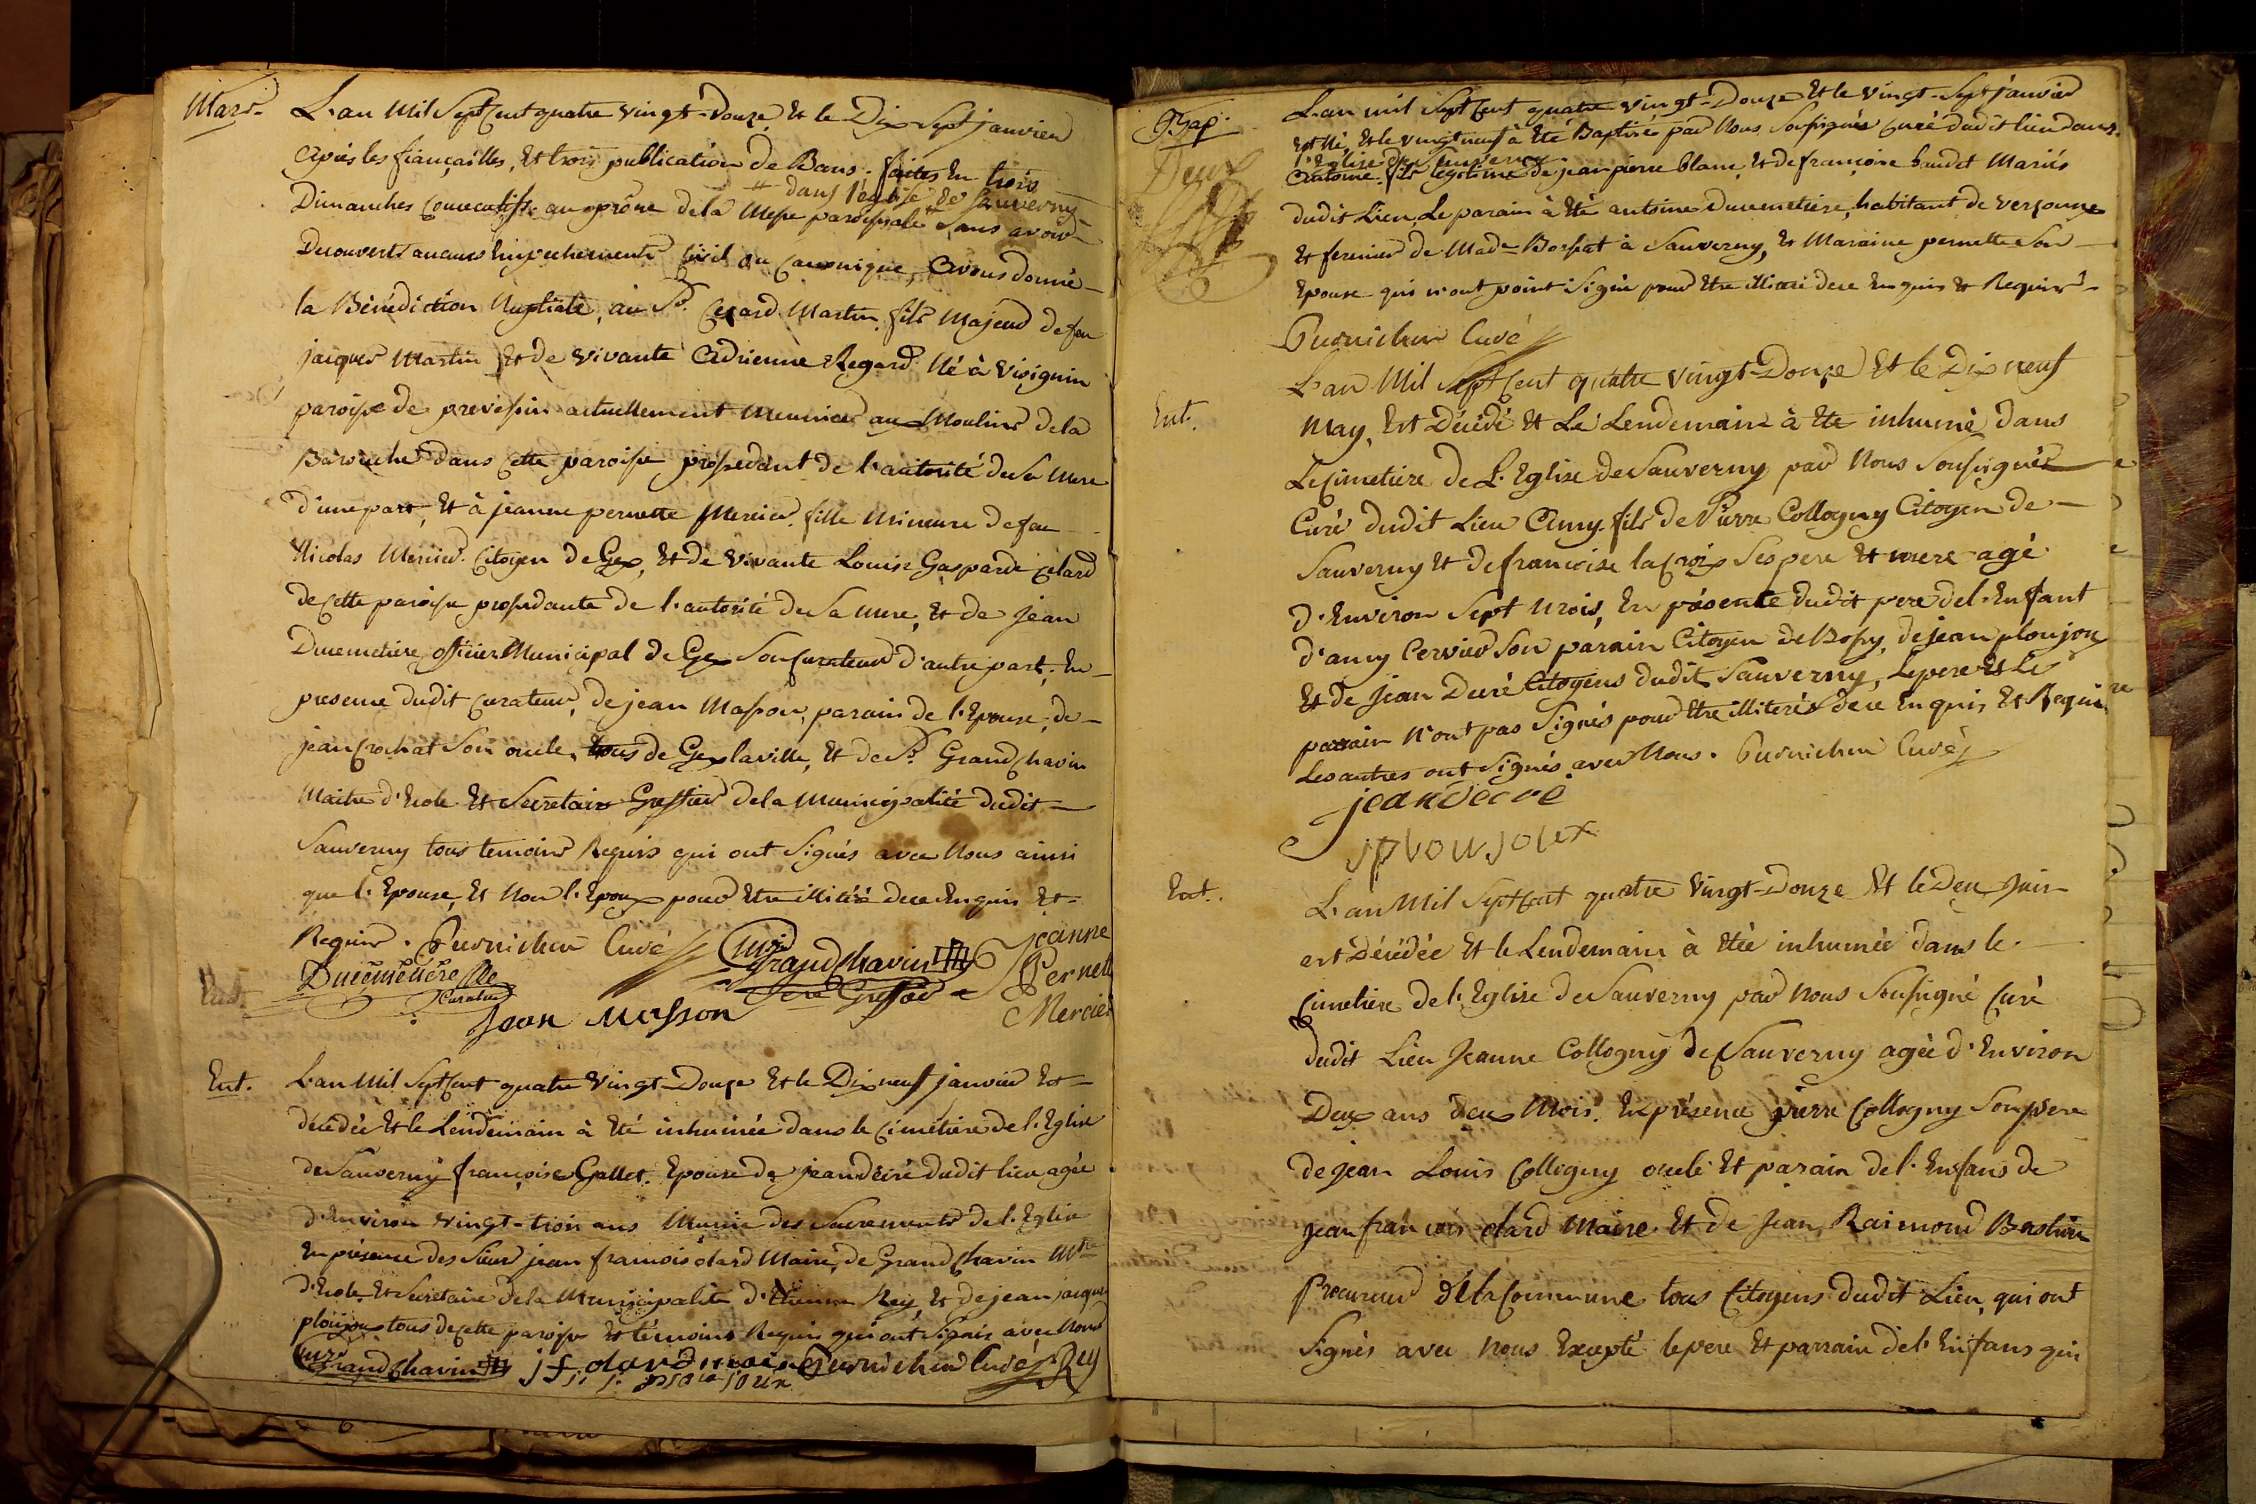 Mar.
L'an Mil Sept Cent quatre vingt-Douze Et le Dix Sept janvier
Après les fiançailles, Et trois publication de Bans. faites En trois
# dans l'église de Sauverny
Dimanches Consecutifs au prône dela Messe paroissiale # Sans avoir
Decouvert aucuns Empechements Civil ou Canonique, Avons donné
la Bénédiction Nuptiale, au Sr. Cezard Martin, fils Majeur de feu
jacques Martin Et de vivante Adrienne Regard Né à
paroisse de prevessin actuellement Meunier au Moulins dela
dans Cette paroisse procedant de l'autorité de Sa Mere
d'une part, Et à jeanne pernette Mercier fille Mineure de feu
Nicolas Mercier Citoyen de Gex, Et de vivante Louise Gasparde
de Cette paroisse procedante de l'autorité de Sa Mere, Et de jean
Ducimetière officier Municipal de Gex Son Curateur d'autre part, En
presence dudit Curateur, de jean Masson, parain de l'Epouse, de
jean Crochat Son oncle, tous de Gex la ville, Et de Sr. Grand Chavin
Maitre d'Ecole Et Secretaire Greffier dela Municipalité dudit
Sauverny tous temoins Requis qui ont Signés avec Nous ainsi
que l'Epouse, Et Non l'Epoux pour Etre illiteré de ce Enquis Et
Requis. Curé
Ducimetière
Curateur
Grand Chavin
Greffier
Jeanne
Pernett
Mercier
Jean Masson
Ent.
L'an Mil Sept Cent quatre Vingt-Douze Et le Dix neuf janvier Est
décédée Et le Lendemain à Eté inhumée dans le Cimetière de l'Eglise
de Sauverny françoise Gallet. Epouse de jean déiré dudit lieu agée
d'Environ vingt-tion ans Munie des Sacrements de l'Eglise
En présence des Sieur jean francois olard Maire, de Grand Chavin Mtre
d'Ecole Et Secretaire dela Municipalité d'Etienne Rey, Et de jean jacques
ploujoux tous de Cette paroisse Et témoins Requis qui ont Signés avec Nous
Grand Chavin j f. olard maire Curé Rey
Bap.
Deux
L'an mil Sept Cent quatre vingt-Douze Et le vingt-Sept janvier
Est Né, Et le vingt neuf à Eté Baptisé par Nous Soussignés Curé dudit lieu dans
l'Eglise de Sauverny
Antoine. fils legitime de jean pierre blanc, Et de françoise Mariés
dudit Lieu, Le parain à Eté antoine Ducimetière, habitant de Versonnex
Et fermier de Made à Sauverny, Et Maraine pernette Son
Epouse qui n'ont point Signé pour Etre de ce Enquis Et Requis
Curé
Ent.
L'an Mil Sept Cent quatre vingt-Douze Et le Dix neuf
May, Est Décédé Et Le Lendemain à Eté inhumé dans
Le Cimetière de L'Eglise de Sauverny par Nous Soussignés
Curé dudit Lieu Amy. fils de Pierre Collogny Citoyen de
Sauverny Et de francoise la Croix Ses pere Et mere agé
d'Environ Sept Mois, En présence dudit pere del'Enfant
d'amy Cervier Son parain Citoyen de Bossy, de jean ploujoux
Et de jean Deiré Citoyens dudit Sauverny, Le pere Et Le
parrain N'ont pas Signés pour Etre illiterés de ce Enquis Et Requis
Les autres ont Signés avec Nous. Curé
Ent.
L'an Mil Sept Cent quatre Vingt-Douze Et le Deu Juin
est Décédée Et le Lendemain à Etée inhumée dans le
Cimetière de l'Eglise de Sauverny par Nous Soussigné Curé
dudit Lieu Jeanne Collogny de Sauverny agée d'Environ
Deux ans deux Mois. En présence pierre Collogny Son pere
de jean Louis Collogny oncle Et parain de l'Enfans de
jean francois olard Maire. Et de Jean Raimond Bastian
Procureur de la Commune tous Citoyens dudit Lieu, qui ont
Signés avec Nous Excepté le pere Et parrain de l'Enfans qui